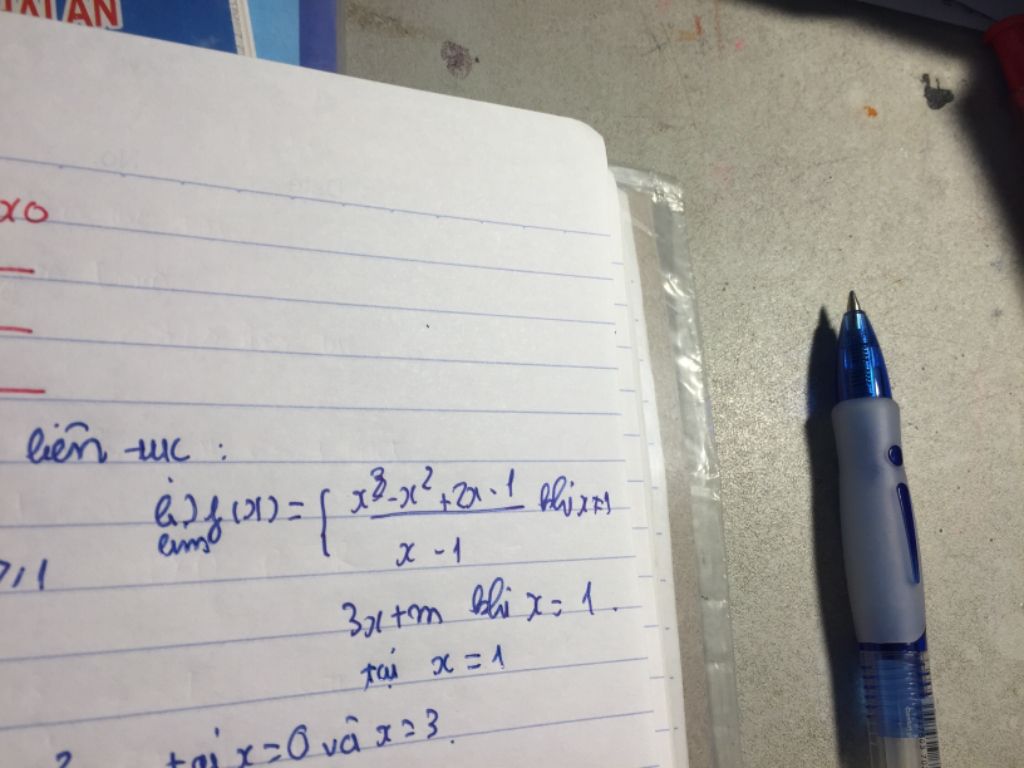 AN
x0
liên tục :
i) f(x) = { x³ - x² + 2x - 1 khi x≠1
x - 1
3x+m khi x = 1.
tại x = 1
tại x=0 và x=3.